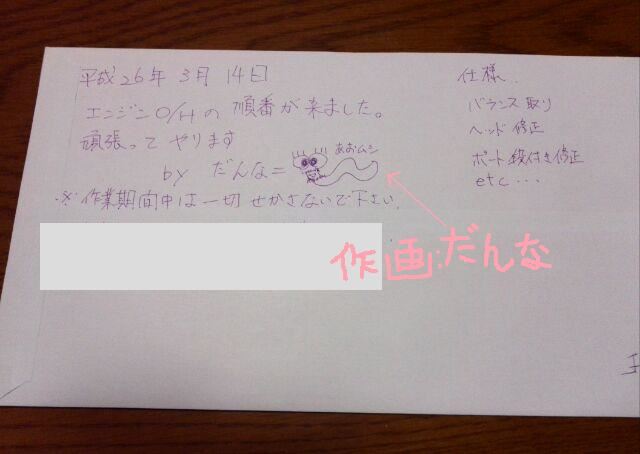 平成26年 3月 14日
エンジンO/Hの順番が来ました。
頑張って やります
by だんな=
あおムシ
※作業期間中は一切せかさないで下さい.
作画:だんな
仕様.
バランス取り
ヘッド修正
ポート段付き修正
etc...